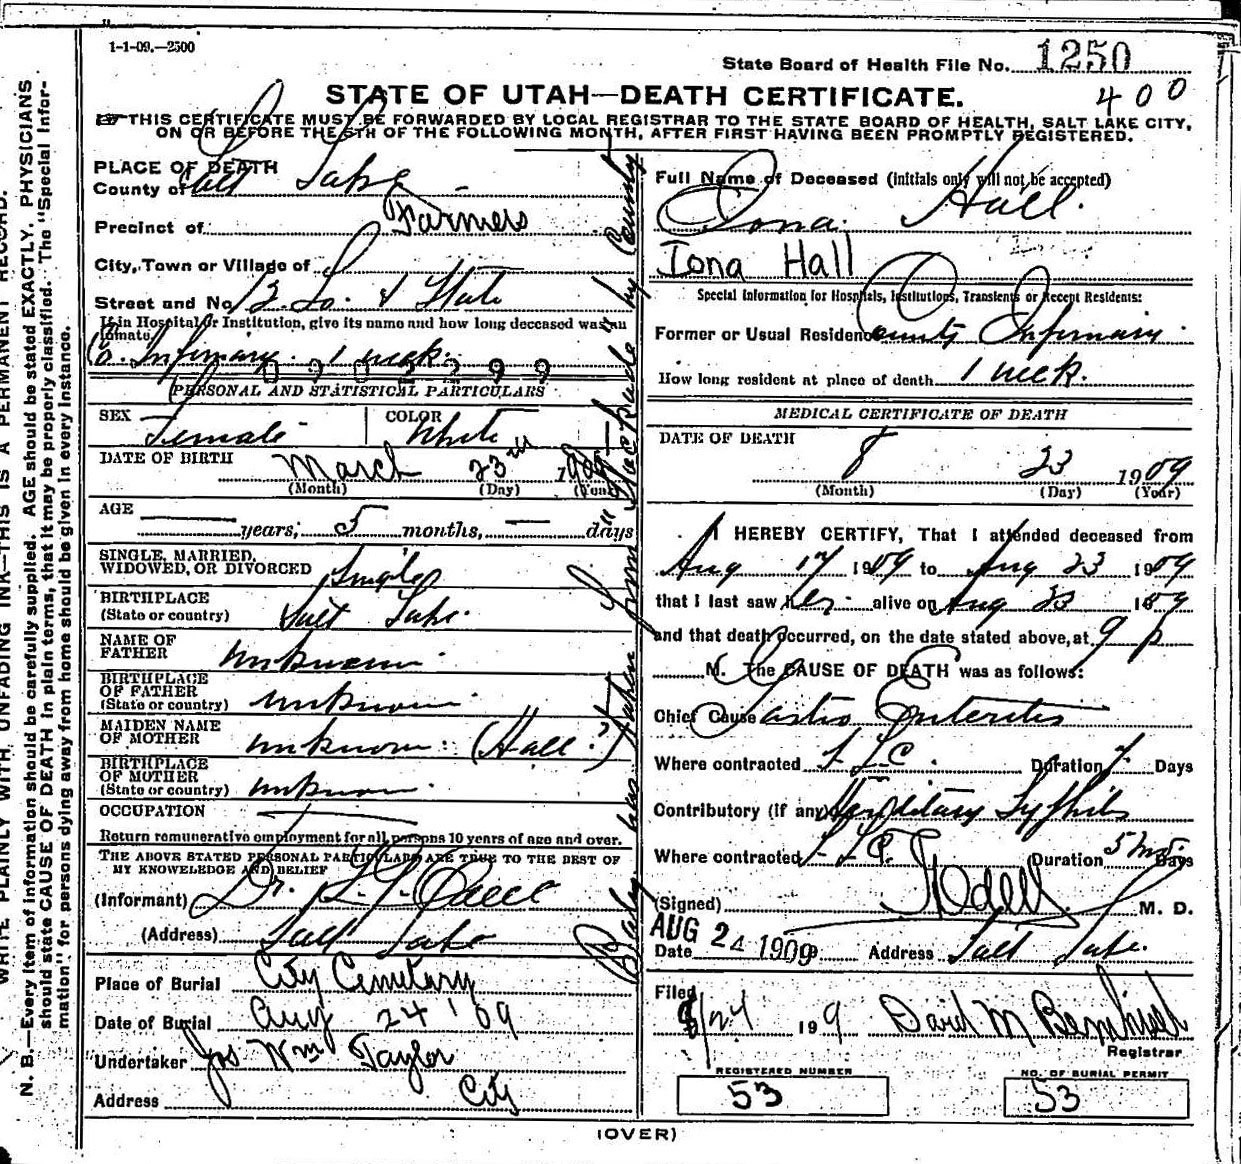 1-1-09.—2500
State Board of Health File No. 1250
STATE OF UTAH—DEATH CERTIFICATE. 400
THIS CERTIFICATE MUST BE FORWARDED BY LOCAL REGISTRAR TO THE STATE BOARD OF HEALTH, SALT LAKE CITY,
ON OR BEFORE THE 5TH OF THE FOLLOWING MONTH, AFTER FIRST HAVING BEEN PROMPTLY REGISTERED.
PLACE OF DEATH
County of Salt Lake
Precinct of Farmers
City, Town or Village of S. L.
Street and No. 12 So. & State
If in Hospital or Institution, give its name and how long deceased was an
inmate
Co. Infirmary. 1 week.
0902299
PERSONAL AND STATISTICAL PARTICULARS
SEX Female COLOR White
DATE OF BIRTH March 23rd 1909
(Month) (Day) (Year)
AGE
— years; 5 months, — days
SINGLE, MARRIED,
WIDOWED, OR DIVORCED Single
BIRTHPLACE
(State or country) Salt Lake.
NAME OF
FATHER unknown.
BIRTHPLACE
OF FATHER
(State or country) unknown.
MAIDEN NAME
OF MOTHER unknown: (Hall.)
BIRTHPLACE
OF MOTHER
(State or country) unknown.
OCCUPATION
Return remunerative employment for all persons 10 years of age and over.
THE ABOVE STATED PERSONAL PARTICULARS ARE TRUE TO THE BEST OF
MY KNOWLEDGE AND BELIEF
(Informant) Dr.
(Address) Salt Lake
Place of Burial City Cemetery
Date of Burial Aug 24 '09
Undertaker Jos Wm Taylor
Address City
Baby was taken from "
Full Name of Deceased (initials only will not be accepted)
Iona Hall.
Iona Hall
Special Information for Hospitals, Institutions, Transients or Recent Residents:
Former or Usual Residence County Infirmary.
How long resident at place of death 1 week.
MEDICAL CERTIFICATE OF DEATH
DATE OF DEATH
8 23 1909
(Month) (Day) (Year)
I HEREBY CERTIFY, That I attended deceased from
Aug 17 1909 to Aug 23 1909
that I last saw her alive on Aug 23 1909
and that death occurred, on the date stated above, at 9 P
M. The CAUSE OF DEATH was as follows:
Chief Cause Gastro Enteritis
Where contracted S. L. C. Duration 7 Days
Contributory (if any) Hereditary Syphilis
Where contracted S. L. C. Duration 5 mos Days
(Signed) Odell M. D.
Date AUG 24 1909 Address Salt Lake.
Filed
8/24 19 9 David M Bernhisel
Registrar
REGISTERED NUMBER
53
NO. OF BURIAL PERMIT
53
(OVER)
WRITE PLAINLY WITH UNFADING INK—THIS IS A PERMANENT RECORD.
N. B.—Every item of information should be carefully supplied. AGE should be stated EXACTLY. PHYSICIANS
should state CAUSE OF DEATH in plain terms, that it may be properly classified. The "Special Infor-
mation" for persons dying away from home should be given in every instance.